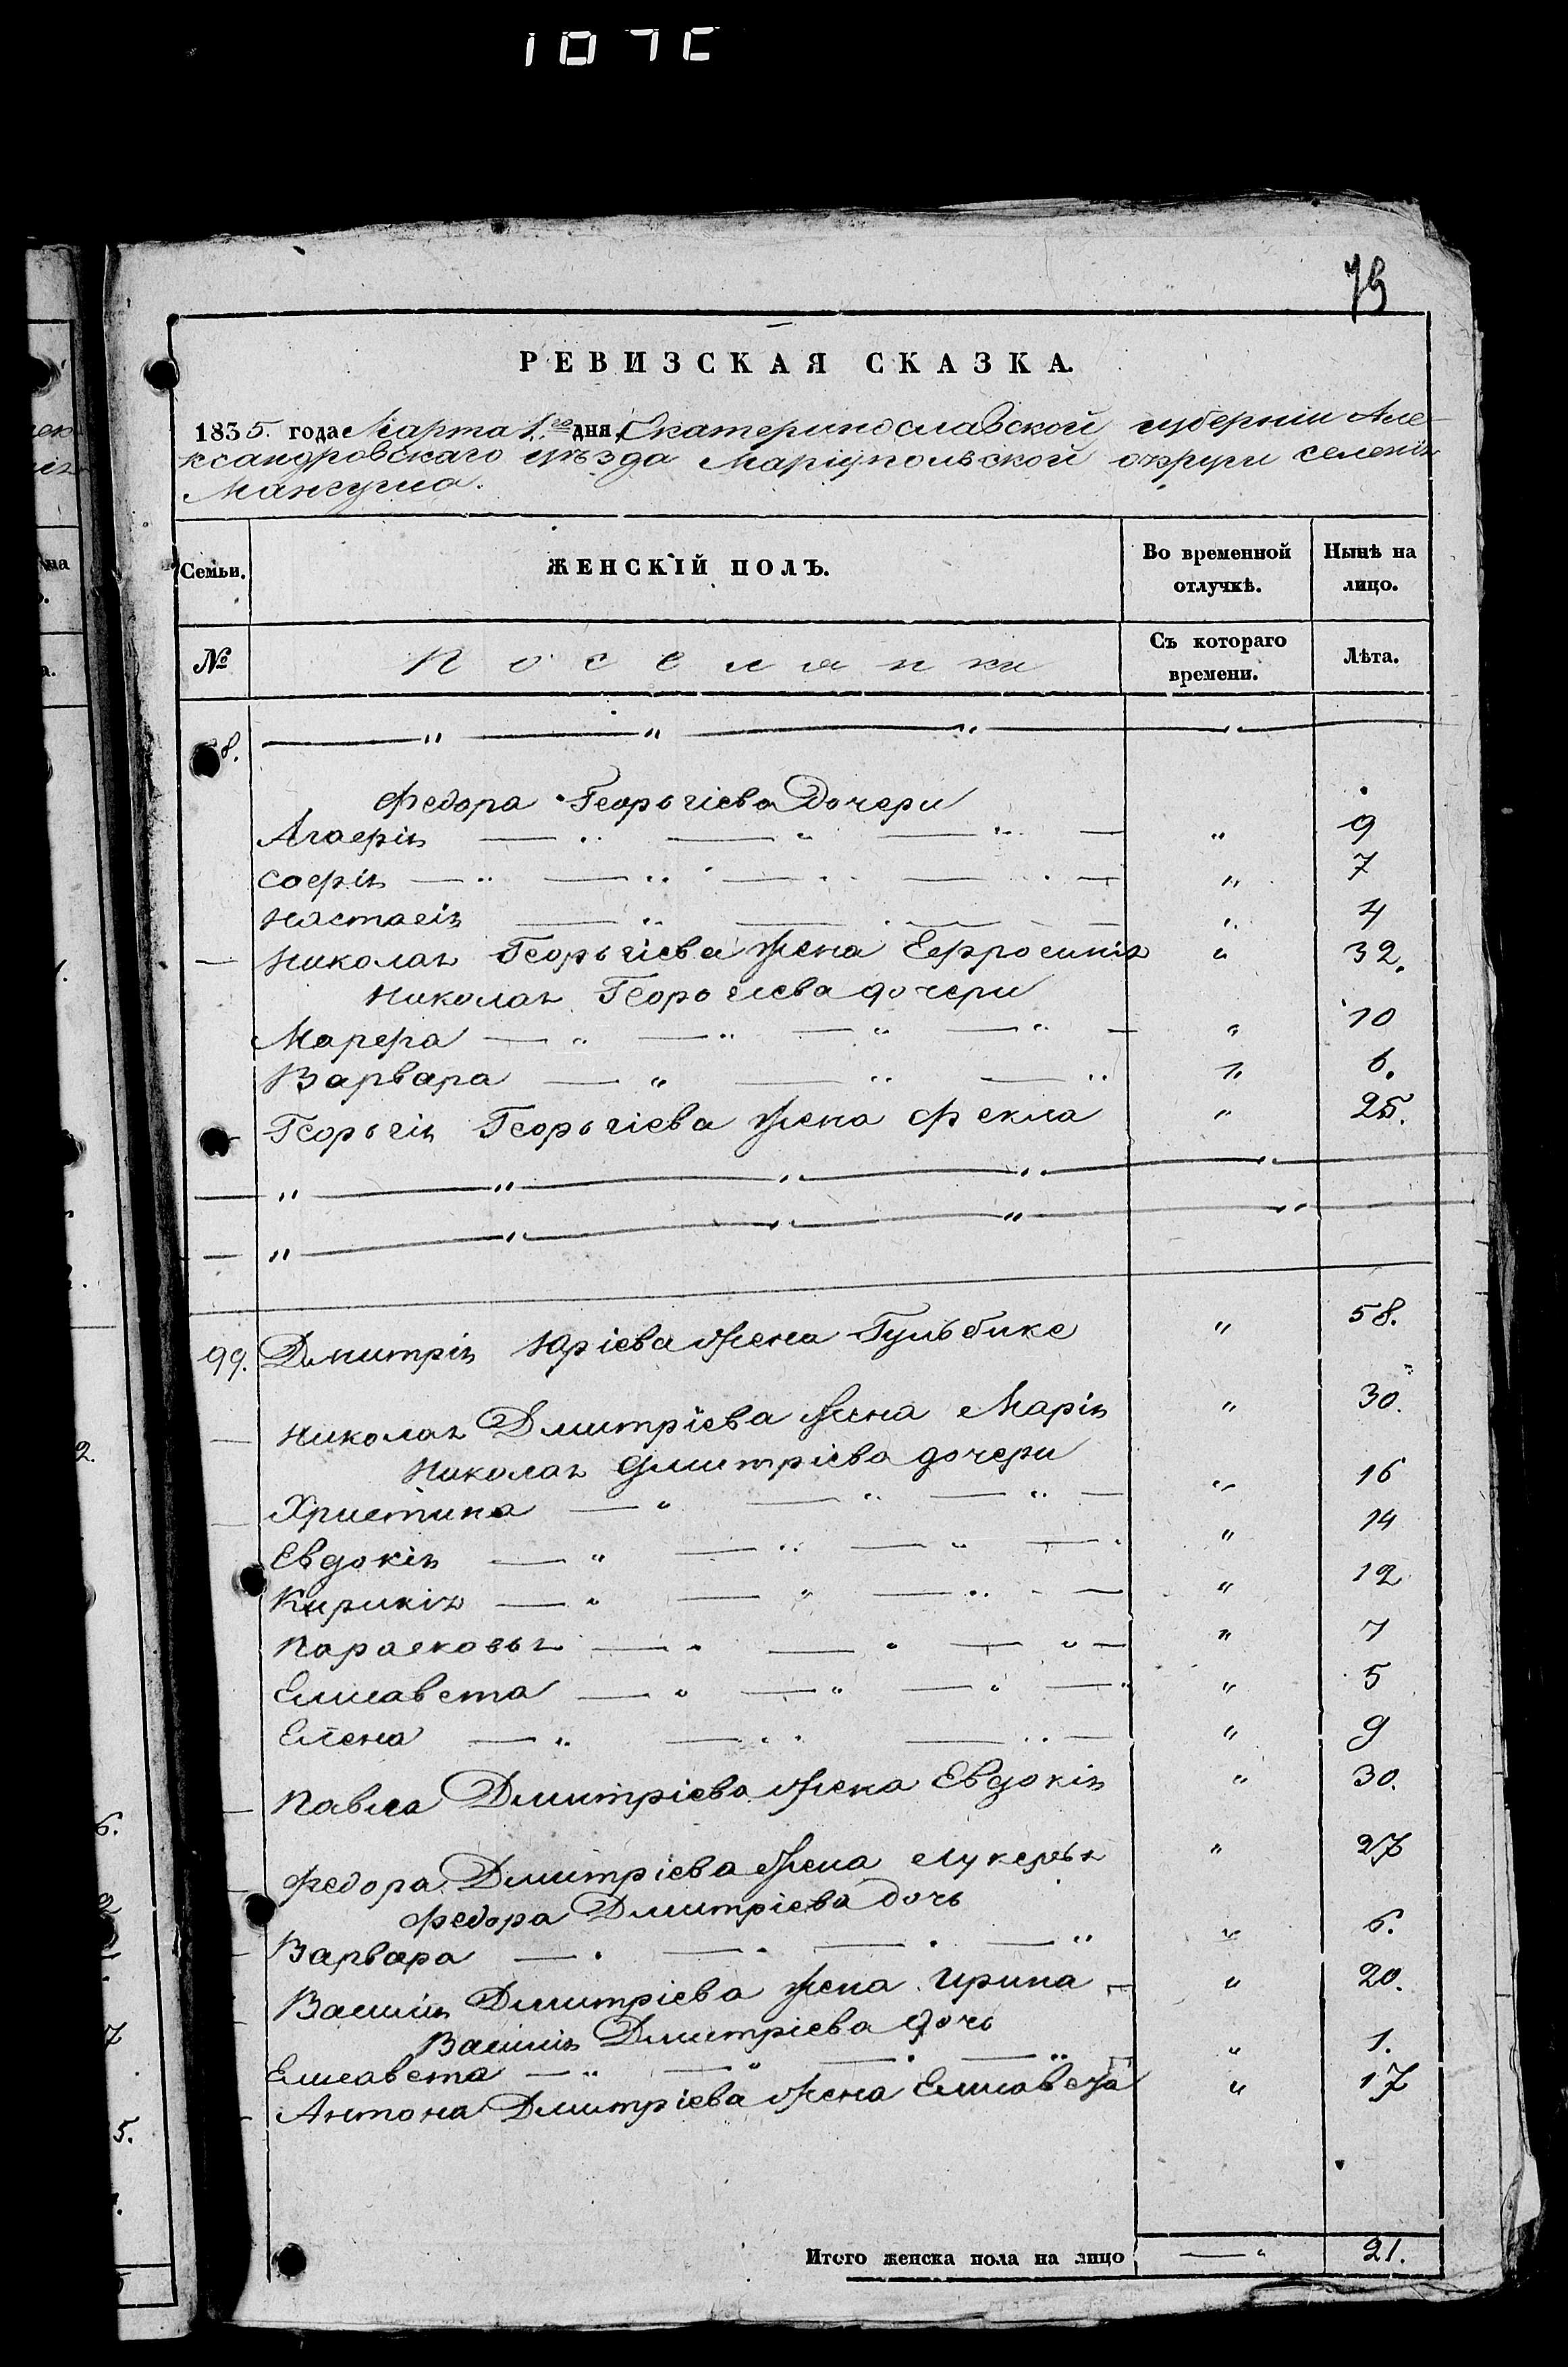 107C
79
РЕВИЗСКАЯ СКАЗКА.
1835. года Марта 1.го дня, Екатеринославской губерніи Але-
ксандровскаго уѣзда Маріупольской округи селенія
Мангуша.
Семьи. ЖЕНСКІЙ ПОЛЪ. Во временной отлучкѣ. Нынѣ на лицо.
№ Поселянки Съ котораго времени. Лѣта.
8. " " " "
Федора Георгіева Дочери
Агафія " " " " 9
Софія " " " " 7
Настасія " " " 4
Николая Георгіева жена Ефросинія " 32.
Николая Георгіева дочери
Марфа " " " " " 10
Варвара " " " " 6.
Георгія Георгіева жена Фекла " 25.
" " " " "
" " " " "
99. Дмитрія Юріева жена Гульбике " 58.
Николая Дмитріева жена Марія " 30.
Николая Дмитріева дочери
Христина " " " " 16
Евдокія " " " " " 14
Кирикія " " " " 12
Парасковья " " " " 7
Елисавета " " " " " 5
Елена " " " " 9
Павла Дмитріева жена Евдокія " 30.
Федора Дмитріева жена Лукерья " 27
Федора Дмитріева дочь
Варвара " " " " " 6.
Василія Дмитріева жена Ирина " 20.
Василія Дмитріева дочь
Елисавета " " " " " 1.
Антона Дмитріева жена Елисавета " 17
Итого женска пола на лицо " 21.